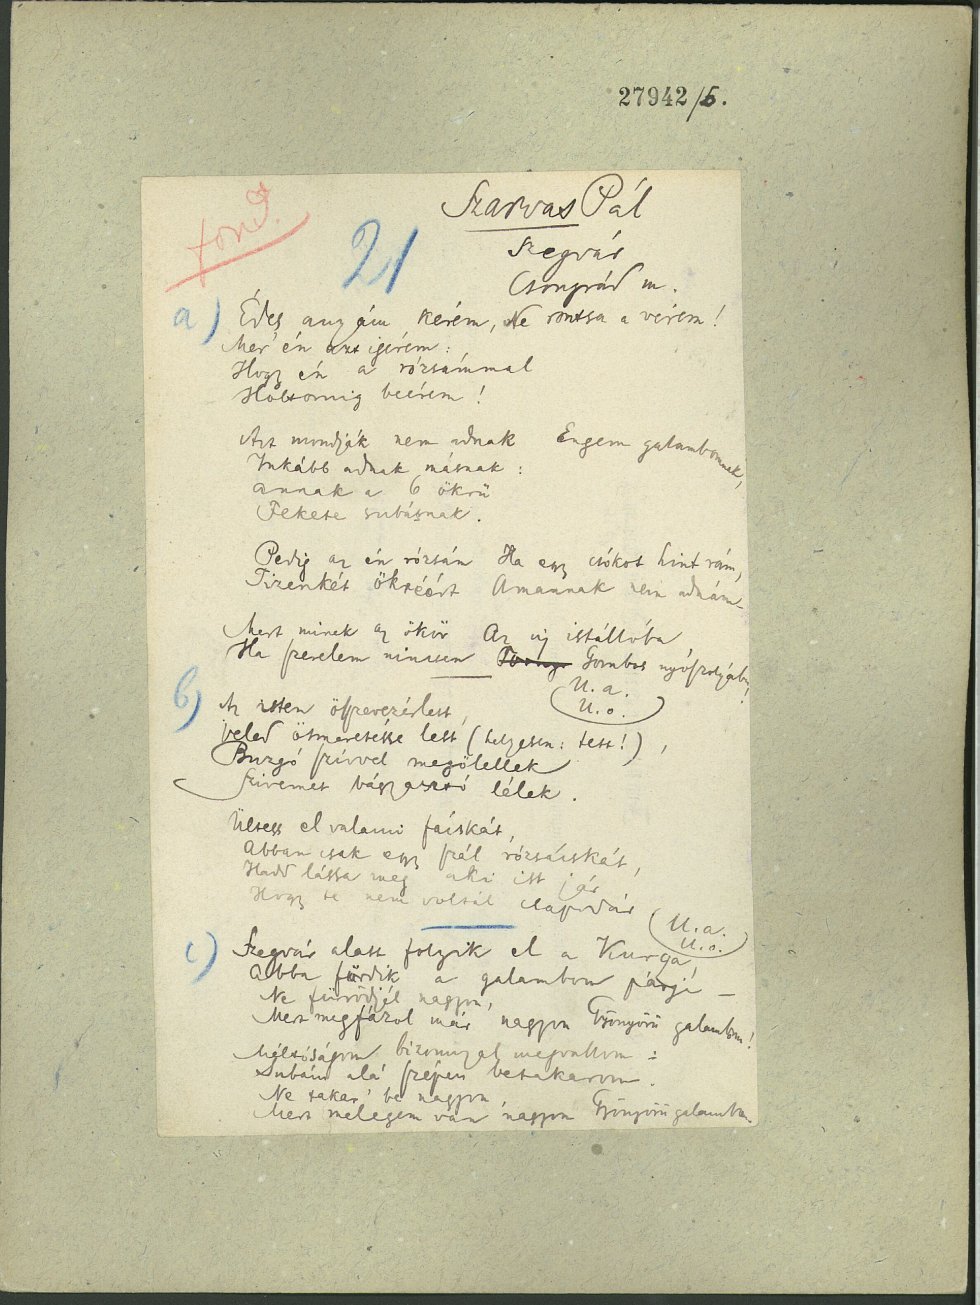 27942/5.
ford.
21
Szarvas Pál
Szegvár
Csongrád m.
a) Édes anyám kérem, Ne rontsa a vérem!
Mer' én azt igérem:
Hogy én a rózsámmal
Holtomig beérem!
Azt mondják nem adnak Engem galambomnak,
Inkább adnak másnak:
Annak a 6 ökrü
Fekete subásnak.
Pedig az én rózsám Ha egy csókot hint rám,
Tizenkét ökréért Amannak nem adnám—
Mert minek az ökör Az uj istállóba
Ha szerelem nincsen Gombos nyószolyába!
U.a.
U.o.
b) Az isten összevezérlett,
veled ösmeretésse lett (helyesen: tett!),
Buzgó szívvel megölellek
Szivemet vágyasztó lélek.
Ültess el valami fáiskát,
Abban csak egy szál rózsáiskát,
Hadd lássa meg aki itt jár
Hogy te nem voltál csapodár
U.a.
U.o.
c) Szegvár alatt folyik el a Kurga
Abba fürdik a galambom párja—
Ne fürödjél nagyon,
Mert megfázol már nagyon Gyönyörü galambom!
Méltóságom bizonnyal megvallom:
Subám alá szépen betakarom.
Ne takar' be nagyon
Mert melegem ván nagyon Gyönyörü galambom.